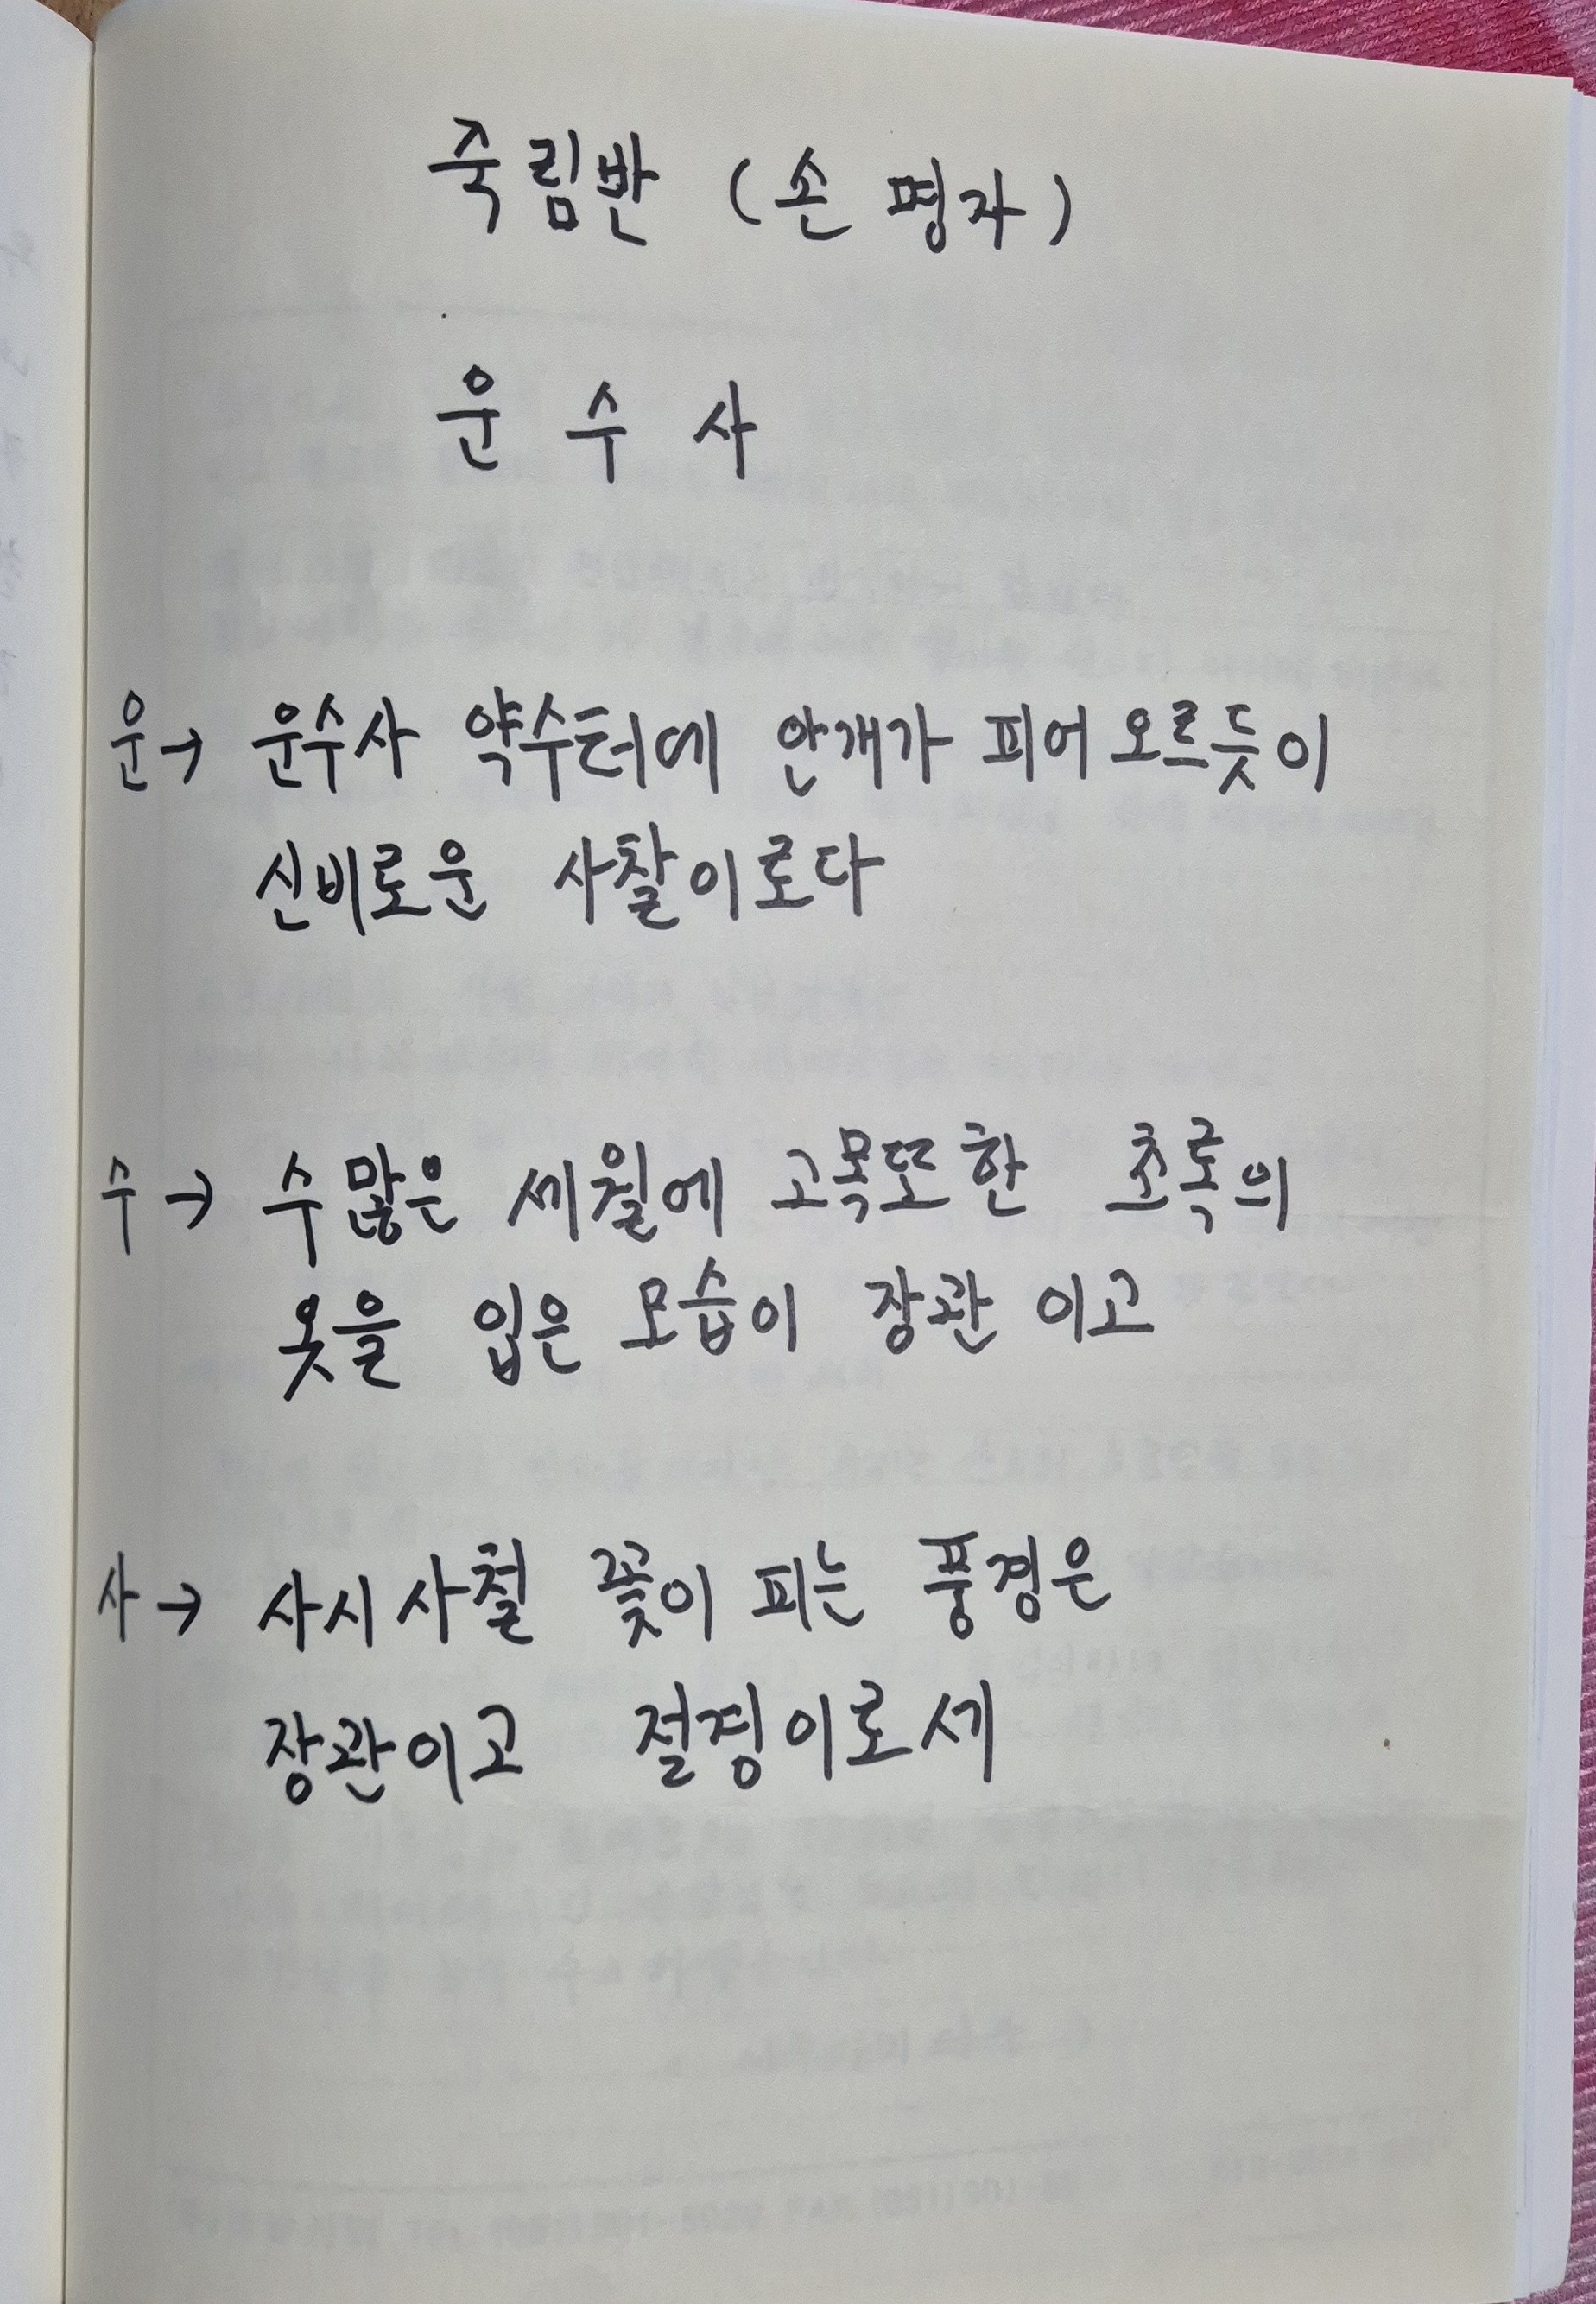 죽림반 (손 명자)
운 수 사
운→ 운수사 약수터에 안개가 피어오르듯이
신비로운 사찰이로다
수→ 수많은 세월에 고목또한 초록의
옷을 입은 모습이 장관 이고
사→ 사시사철 꽃이 피는 풍경은
장관이고 절경이로세